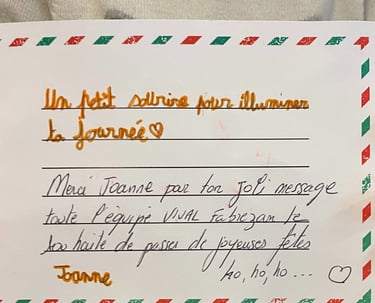 Un petit sourire pour illuminer
ta journée ♡
Merci Joanne par ton joli message
toute l'équipe VIVAL Fabrezan te
souhaite de passer de joyeuses fêtes
Joanne
ho, ho, ho... ♡